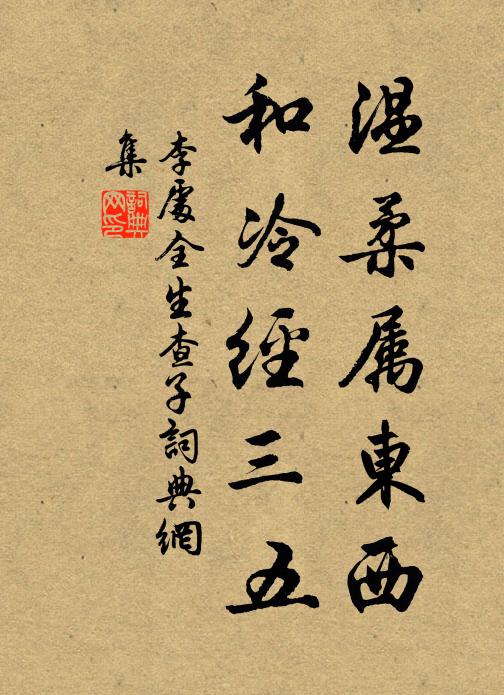 温柔属東西
和冷經三五
李處全生查子詞典網
集
詞典網印